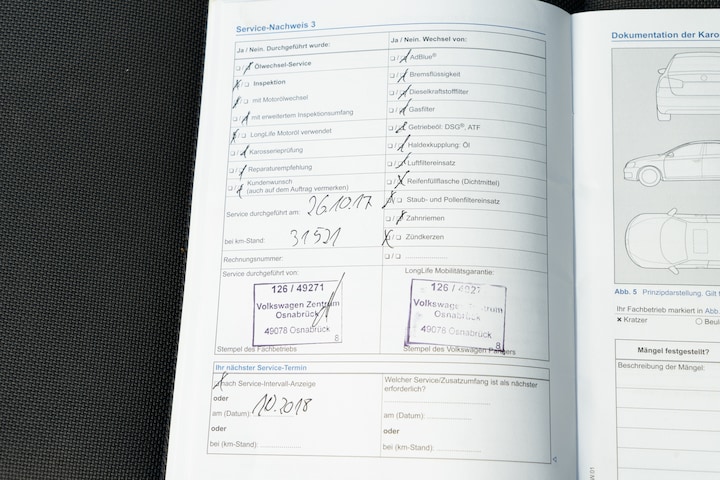 Service-Nachweis 3
Ja / Nein. Durchgeführt wurde:
Ölwechsel-Service
Inspektion
mit Motorölwechsel
mit erweitertem Inspektionsumfang
LongLife Motoröl verwendet
Karosserieprüfung
Reparaturempfehlung
Kundenwunsch
(auch auf dem Auftrag vermerken)
Service durchgeführt am: 26.10.17
bei km-Stand: 31521
Rechnungsnummer:
Ja / Nein. Wechsel von:
AdBlue®
Bremsflüssigkeit
Dieselkraftstofffilter
Gasfilter
Getriebeöl: DSG®, ATF
Haldexkupplung: Öl
Luftfiltereinsatz
Reifenfüllflasche (Dichtmittel)
Staub- und Pollenfiltereinsatz
Zahnriemen
Zündkerzen
Service durchgeführt von:
126 / 49271
Volkswagen Zentrum
Osnabrück
49078 Osnabrück
8
Stempel des Fachbetriebs
LongLife Mobilitätsgarantie:
126 / 4927
Volkswagen Zentrum
Osnabrück
49078 Osnabrück
8
Stempel des Volkswagen Partners
Ihr nächster Service-Termin
nach Service-Intervall-Anzeige
oder
am (Datum): 10.2018
oder
bei (km-Stand):
Welcher Service/Zusatzumfang ist als nächster
erforderlich?
am (Datum):
oder
bei (km-Stand):
Dokumentation der Karo
Abb. 5 Prinzipdarstellung. Gilt f
Ihr Fachbetrieb markiert in Abb.
x Kratzer
Beul
Mängel festgestellt?
Beschreibung der Mängel: